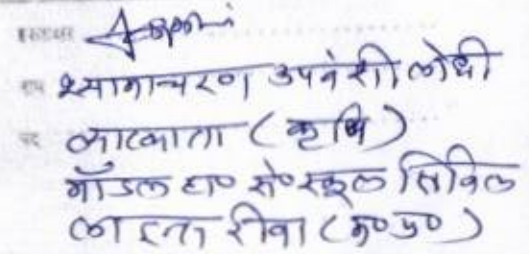 हस्ताक्षर
नाम श्यामाचरण उपवंशी लोधी
पद व्याख्याता (कृषि)
मॉडल हा० से० स्कूल सिविल
लाइन्स रीवा (म०प्र०)